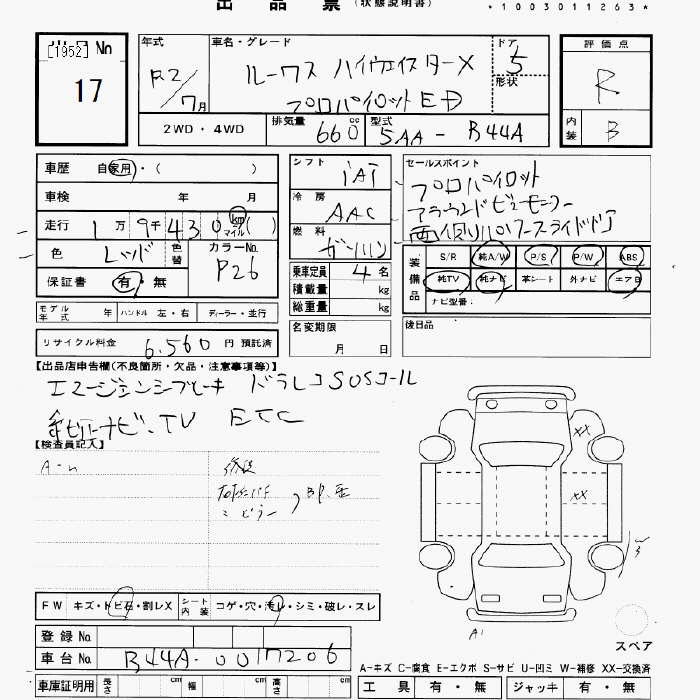 出品票 (状態説明書)
*1003011263*
[1952] No
17
年式
R2/7月
車名・グレード
ルークス ハイウェイスターX
プロパイロットED
ドア
5
形状
評価点
R
内装
B
2WD・4WD
排気量
660 cc
型式
5AA-B44A
車歴 自家用・( )
車検 年 月
走行 1万9千430 km マイル ( )
色 レッド
色替
カラーNo.
P26
保証書 有・無
シフト
IAT
冷房
AAC
燃料
ガソリン
乗車定員 4名
積載量 kg
総重量 kg
セールスポイント
プロパイロット
アラウンドビューモニター
両側ハンズフリースライドドア
装備品
S/R 純A/W P/S P/W ABS
純TV 純ナビ 革シート 外ナビ エアB
ナビ型番:
モデル年式 年 ハンドル 左・右 ディーラー・並行
リサイクル料金 6,560円 預託済
名変期限
月 日
後日品
【出品店申告欄(不良箇所・欠品・注意事項等)】
エマージェンシーブレーキ ドラレコ SOSコール
純正ナビ、TV ETC
【検査員記入】
修復
XX
XX
A1
FW キズ・トビ石・割レX
シート内装 コゲ・穴・汚レ・シミ・破レ・スレ
登録No.
車台No. B44A-0017206
車庫証明用 長さ cm 幅 cm 高さ cm
スペア
A-キズ C-腐食 E-エクボ S-サビ U-凹ミ W-補修 XX-交換済
工具 有・無 ジャッキ 有・無